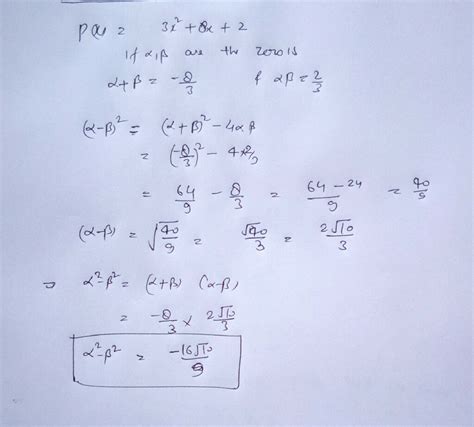 P(x) = 3x² + 8x + 2
if α,β are the zeros
α+β = -8/3 & αβ = 2/3
(α-β)² = (α+β)² - 4αβ
= (-8/3)² - 4×2/3
= 64/9 - 8/3 = 64-24/9 = 40/9
(α-β) = √40/9 = √40/3 = 2√10/3
⇒ α²-β² = (α+β) (α-β)
= -8/3 × 2√10/3
α²-β² = -16√10/9